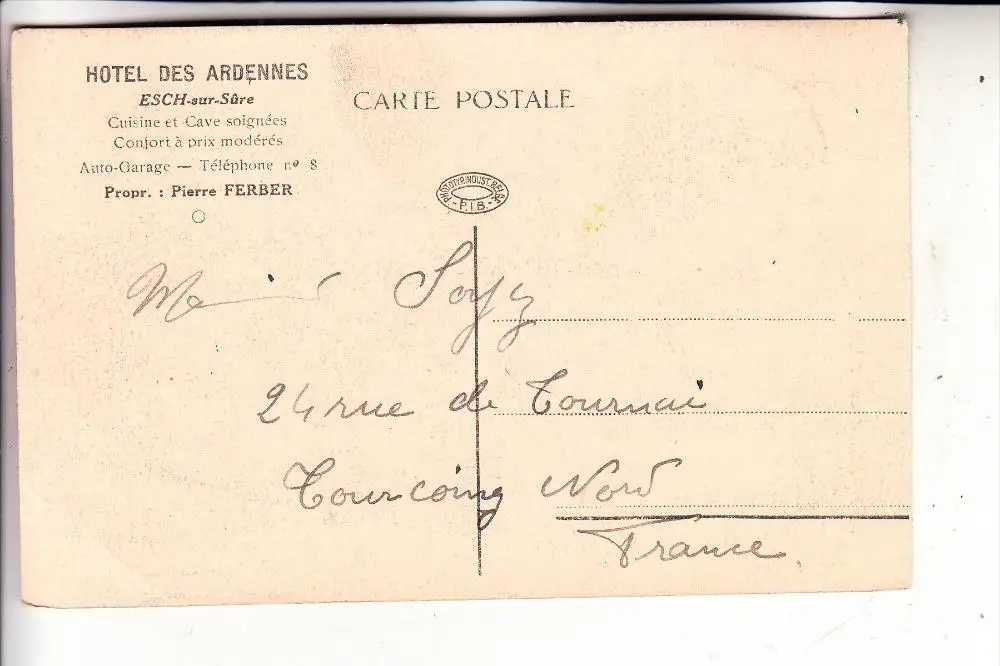 HOTEL DES ARDENNES
ESCH-sur-Sûre
Cuisine et Cave soignées
Confort à prix modérés
Auto-Garage — Téléphone nº 8
Propr. : Pierre FERBER
CARTE POSTALE
PHOTOTYP. INDUST. BELGE
- P.I.B. -
24 rue de Tournai
Tourcoing Nord
France